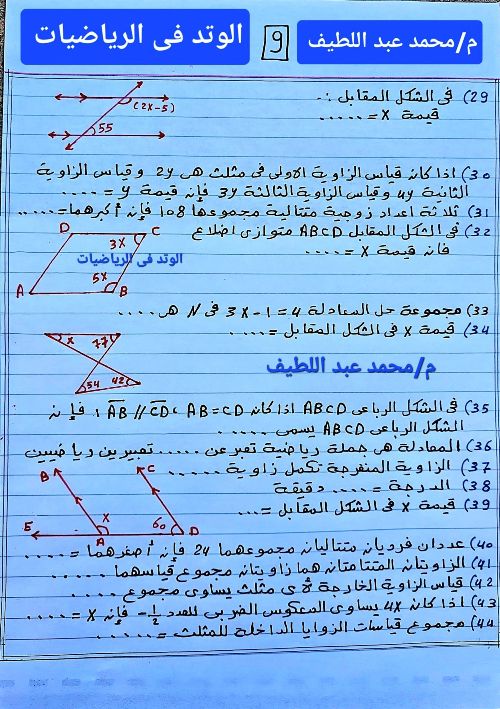 الوتد فى الرياضيات
9
م/محمد عبد اللطيف
29) فى الشكل المقابل :-
قيمة X = .....
(2X-5)
55
30) اذا كان قياس الزاوية الاولى فى مثلث هى 2y وقياس الزاوية
الثانية 4y وقياس الزاوية الثالثة 3y فإن قيمة y = ....
31) ثلاثة اعداد زوجية متتالية مجموعها 108 فإن أكبرهما = .....
32) فى الشكل المقابل ABCD متوازى اضلاع
فان قيمة X = ....
D
C
3X
الوتد فى الرياضيات
5X
A
B
33) مجموعة حل المعادلة 3X-1=4 فى N هى ....
34) قيمة X فى الشكل المقابل = ....
X
77
54
42
م/محمد عبد اللطيف
35) فى الشكل الرباعى ABCD اذا كان AB = CD ، AB // CD ، فإن
الشكل الرباعى ABCD يسمى .....
36) المعادلة هى جملة رياضية تعبر عن ..... تعبيرين رياضيين
37) الزاوية المنفرجة تكمل زاوية .....
38) الدرجة = .... دقيقة
39) قيمة X فى الشكل المقابل = ...
B
C
X
60
E
A
D
40) عددان فرديان متتاليان مجموعهما 24 فإن أصغرهما = ....
41) الزاويتان المتتامتان هما زاويتان مجموع قياسهما .....
42) قياس الزاوية الخارجة لأى مثلث يساوى مجموع .....
43) اذا كان 4X يساوى المعكوس الضربى للعدد -1/2 فإن X = ....
44) مجموع قياسات الزوايا الداخلة للمثلث = .....